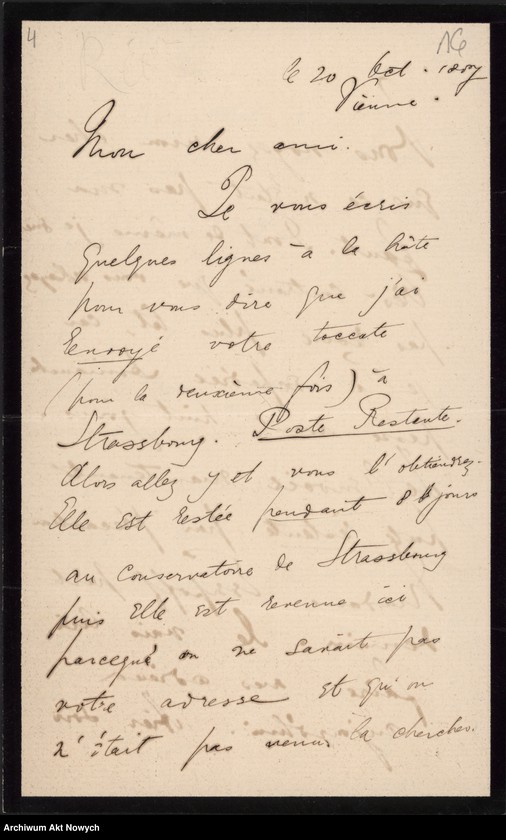 4
16
le 20 Oct.
Vienne.
Mon cher ami.
Je vous écris
quelques lignes à la hâte
pour vous dire que j'ai
Envoyé votre toccate
(pour la deuxième fois) à
Strassbourg. Poste Restente.
Alors allez y et vous l'obtiendrez.
Elle est restée pendant 8 jours
au conservatoire de Strassbourg
puis Elle est revenue ici
parceque on ne savait pas
votre adresse et qu'on
n'était pas venu la chercher.
Archiwum Akt Nowych